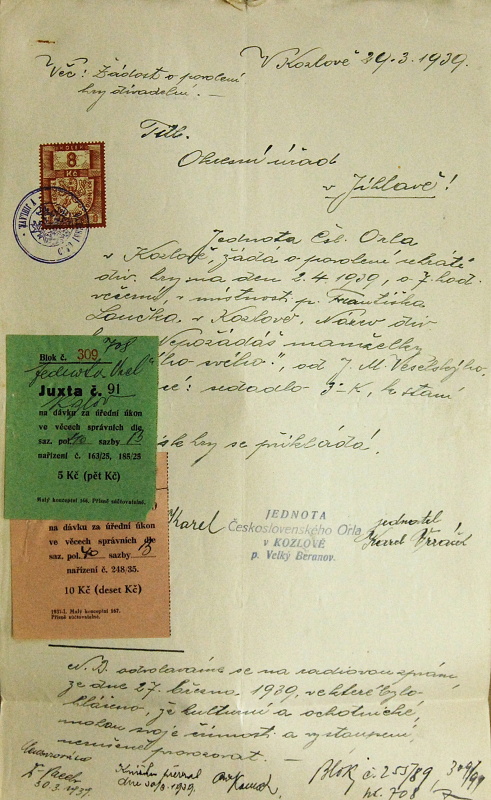 V Kozlově 29.3.1939.
Věc: Žádost o povolení
hry divadelní. —
Titl.
Okresní úřad
v Jihlavě!
KOLEK
8
Kč
Jednota Čsl. Orla
v Kozlově, žádá o povolení sehráti
div. hry na den 2.4.1939, o 7 hod.
večerní, v místnosti p. Františka
Loučka, v Kozlově. Název div.
Nepožádáš manželky
", od J. M. Veselského.
sedadlo 3-K, k stání
hry se přikládá.
708
Blok č. 309
Jednota Orel
Juxta č. 91
Kozlov
na dávku za úřední úkon
ve věcech správních dle
saz. pol. 40 sazby B
nařízení č. 163/25, 185/25
5 Kč (pět Kč)
Malý konceptní 564. Přísně súčtovatelné.
na dávku za úřední úkon
ve věcech správních dle
saz. pol. 40 sazby B
nařízení č. 248/35.
10 Kč (deset Kč)
Karel
JEDNOTA
Československého Orla
v KOZLOVĚ
p. Velký Beranov.
jednatel
Karel
N.B. odvoláváme se na radiovou zprávu
ze dne 27. března 1939, ve které bylo
hlášeno, že kulturní a ochotnické
mohou svoje činnosti a vystoupení
nerušeně provozovat. —
30.3.1939.
dne 30/3 1939.
Blok č. 255/89
pk. 708
309/91